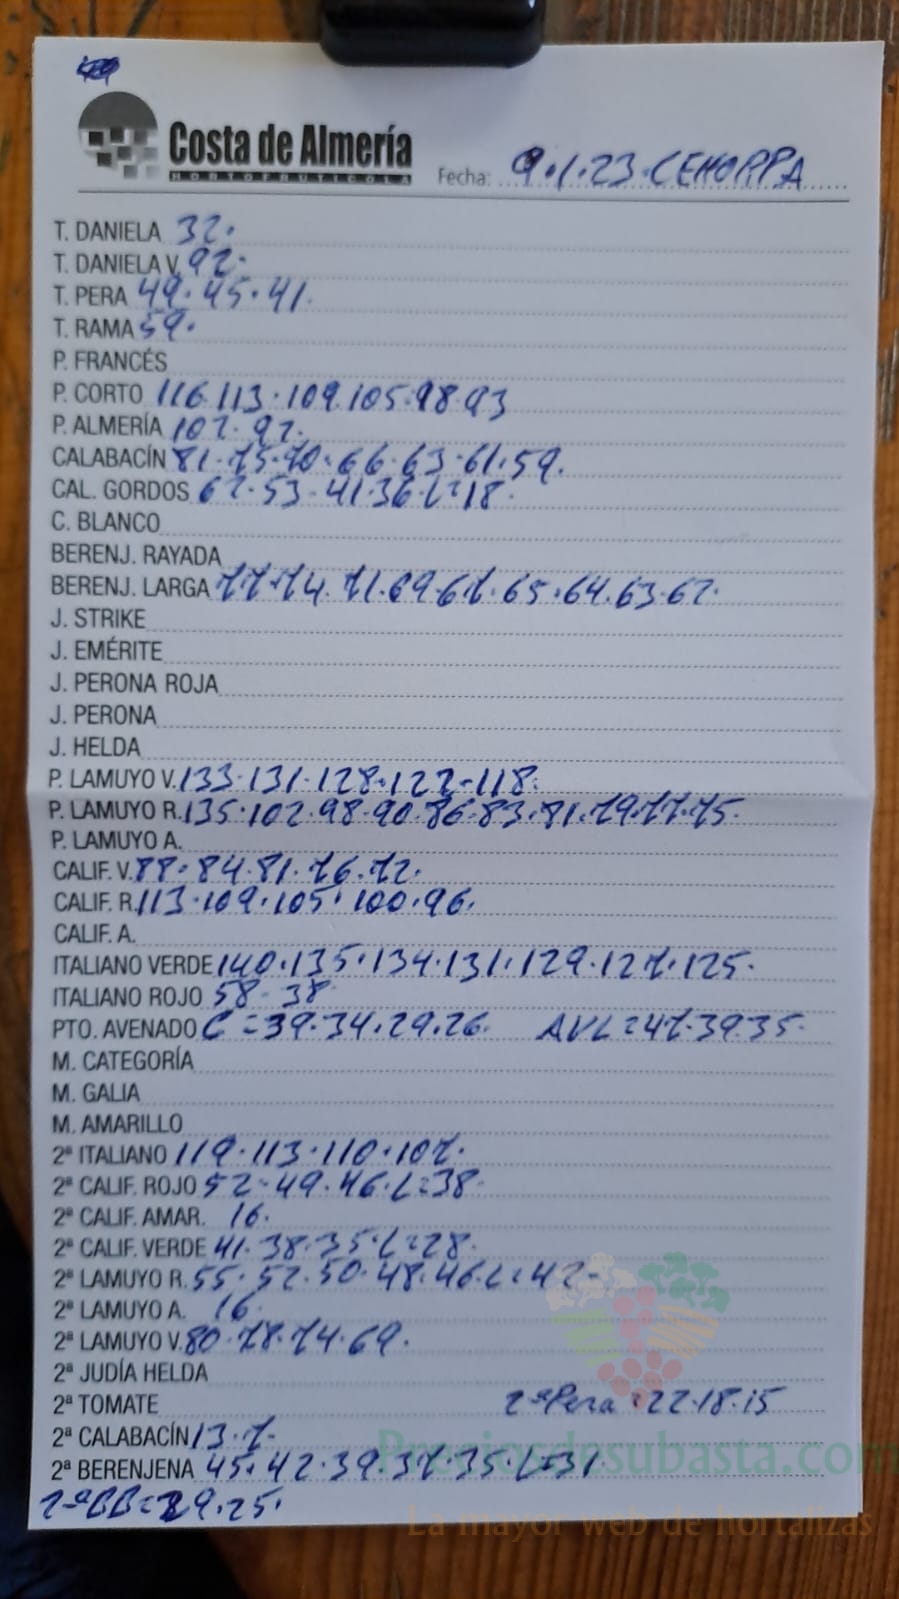 Costa de Almería
HORTOFRUTICOLA
Fecha: 9.1.23.CEHORPA
T. DANIELA 32.
T. DANIELA V. 92.
T. PERA 49.45.41.
T. RAMA 59.
P. FRANCÉS
P. CORTO 116.113.109.105.98.93
P. ALMERÍA 102.92.
CALABACÍN 81.75.70.66.63.61.59.
CAL. GORDOS 62.53.41.36.L=18.
C. BLANCO
BERENJ. RAYADA
BERENJ. LARGA 77.74.71.69.67.65.64.63.62.
J. STRIKE
J. EMÉRITE
J. PERONA ROJA
J. PERONA
J. HELDA
P. LAMUYO V. 133.131.128.122.118.
P. LAMUYO R. 135.102.98.90.86.83.81.79.77.75.
P. LAMUYO A.
CALIF. V. 88.84.81.76.72.
CALIF. R. 113.109.105.100.96.
CALIF. A.
ITALIANO VERDE 140.135.134.131.129.127.125.
ITALIANO ROJO 58-38
PTO. AVENADO C=39.34.29.26. AVL=47.39.35.
M. CATEGORÍA
M. GALIA
M. AMARILLO
2ª ITALIANO 119.113.110.107.
2ª CALIF. ROJO 52-49.46.L=38.
2ª CALIF. AMAR. 16.
2ª CALIF. VERDE 41.38.35.L=28.
2ª LAMUYO R. 55.52.50.48.46.L=42-
2ª LAMUYO A. 16.
2ª LAMUYO V. 80.78.74.69.
2ª JUDÍA HELDA
2ª TOMATE 2ªPera=22.18.15
2ª CALABACÍN 13.7.
2ª BERENJENA 45.42.39.37.35.L=31
2ªBB=29.25.
Preciosdesubasta.com
La mayor web de hortalizas